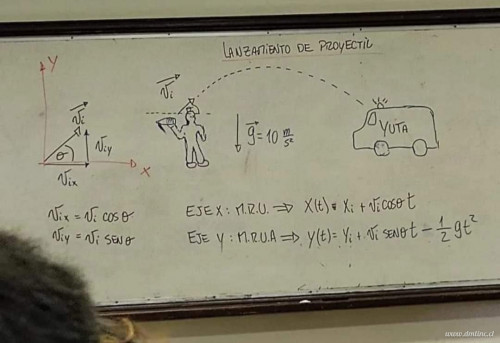 LANZAMIENTO DE PROYECTIL
Y
vi
viy
θ
vix
X
vi
g = 10 m/s²
YUTA
vix = vi cosθ
viy = vi senθ
EJE X : M.R.U. ⇒ X(t) = Xi + vi cosθ t
EJE Y : M.R.U.A ⇒ Y(t) = Yi + vi senθ t − 1/2 gt²
www.dmtinc.cl